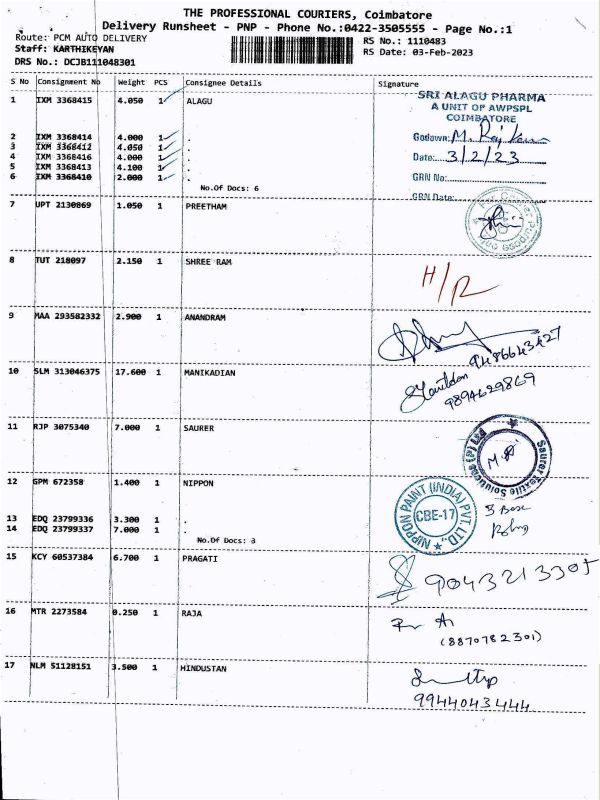 THE PROFESSIONAL COURIERS, Coimbatore
Delivery Runsheet - PNP - Phone No.:0422-3505555 - Page No.:1
Route: PCM AUTO DELIVERY
Staff: KARTHIKEYAN
DRS No.: DCJB111048301
RS No.: 1110483
RS Date: 03-Feb-2023
S No Consignment No Weight PCS Consignee Details Signature
1 IXM 3368415 4.050 1 ALAGU
SRI ALAGU PHARMA
A UNIT OF AWPSPL
COIMBATORE
2 IXM 3368414 4.000 1 .
Godown:
3 IXM 3368412 4.050 1 .
4 IXM 3368416 4.000 1 .
Date: 3/2/23
5 IXM 3368413 4.100 1 .
6 IXM 3368410 2.000 1 .
GRN No:
No.Of Docs: 6
GRN Date:
7 UPT 2130869 1.050 1 PREETHAM
8 TUT 218097 2.150 1 SHREE RAM
H/R
9 MAA 293582332 2.900 1 ANANDRAM
9486643427
10 SLM 313046375 17.600 1 MANIKADIAN
9894629869
11 RJP 3075340 7.000 1 SAURER
Saurer Textile Solutions (P) Ltd
12 GPM 672358 1.400 1 NIPPON
NIPPON PAINT (INDIA) PVT. LTD.
CBE-17
3 Box
13 EDQ 23799336 3.300 1 .
14 EDQ 23799337 7.000 1 .
No.Of Docs: 3
15 KCY 60537384 6.700 1 PRAGATI
9043213305
16 MTR 2273584 0.250 1 RAJA
(8870782301)
17 NLM 51128151 3.500 1 HINDUSTAN
9944043444